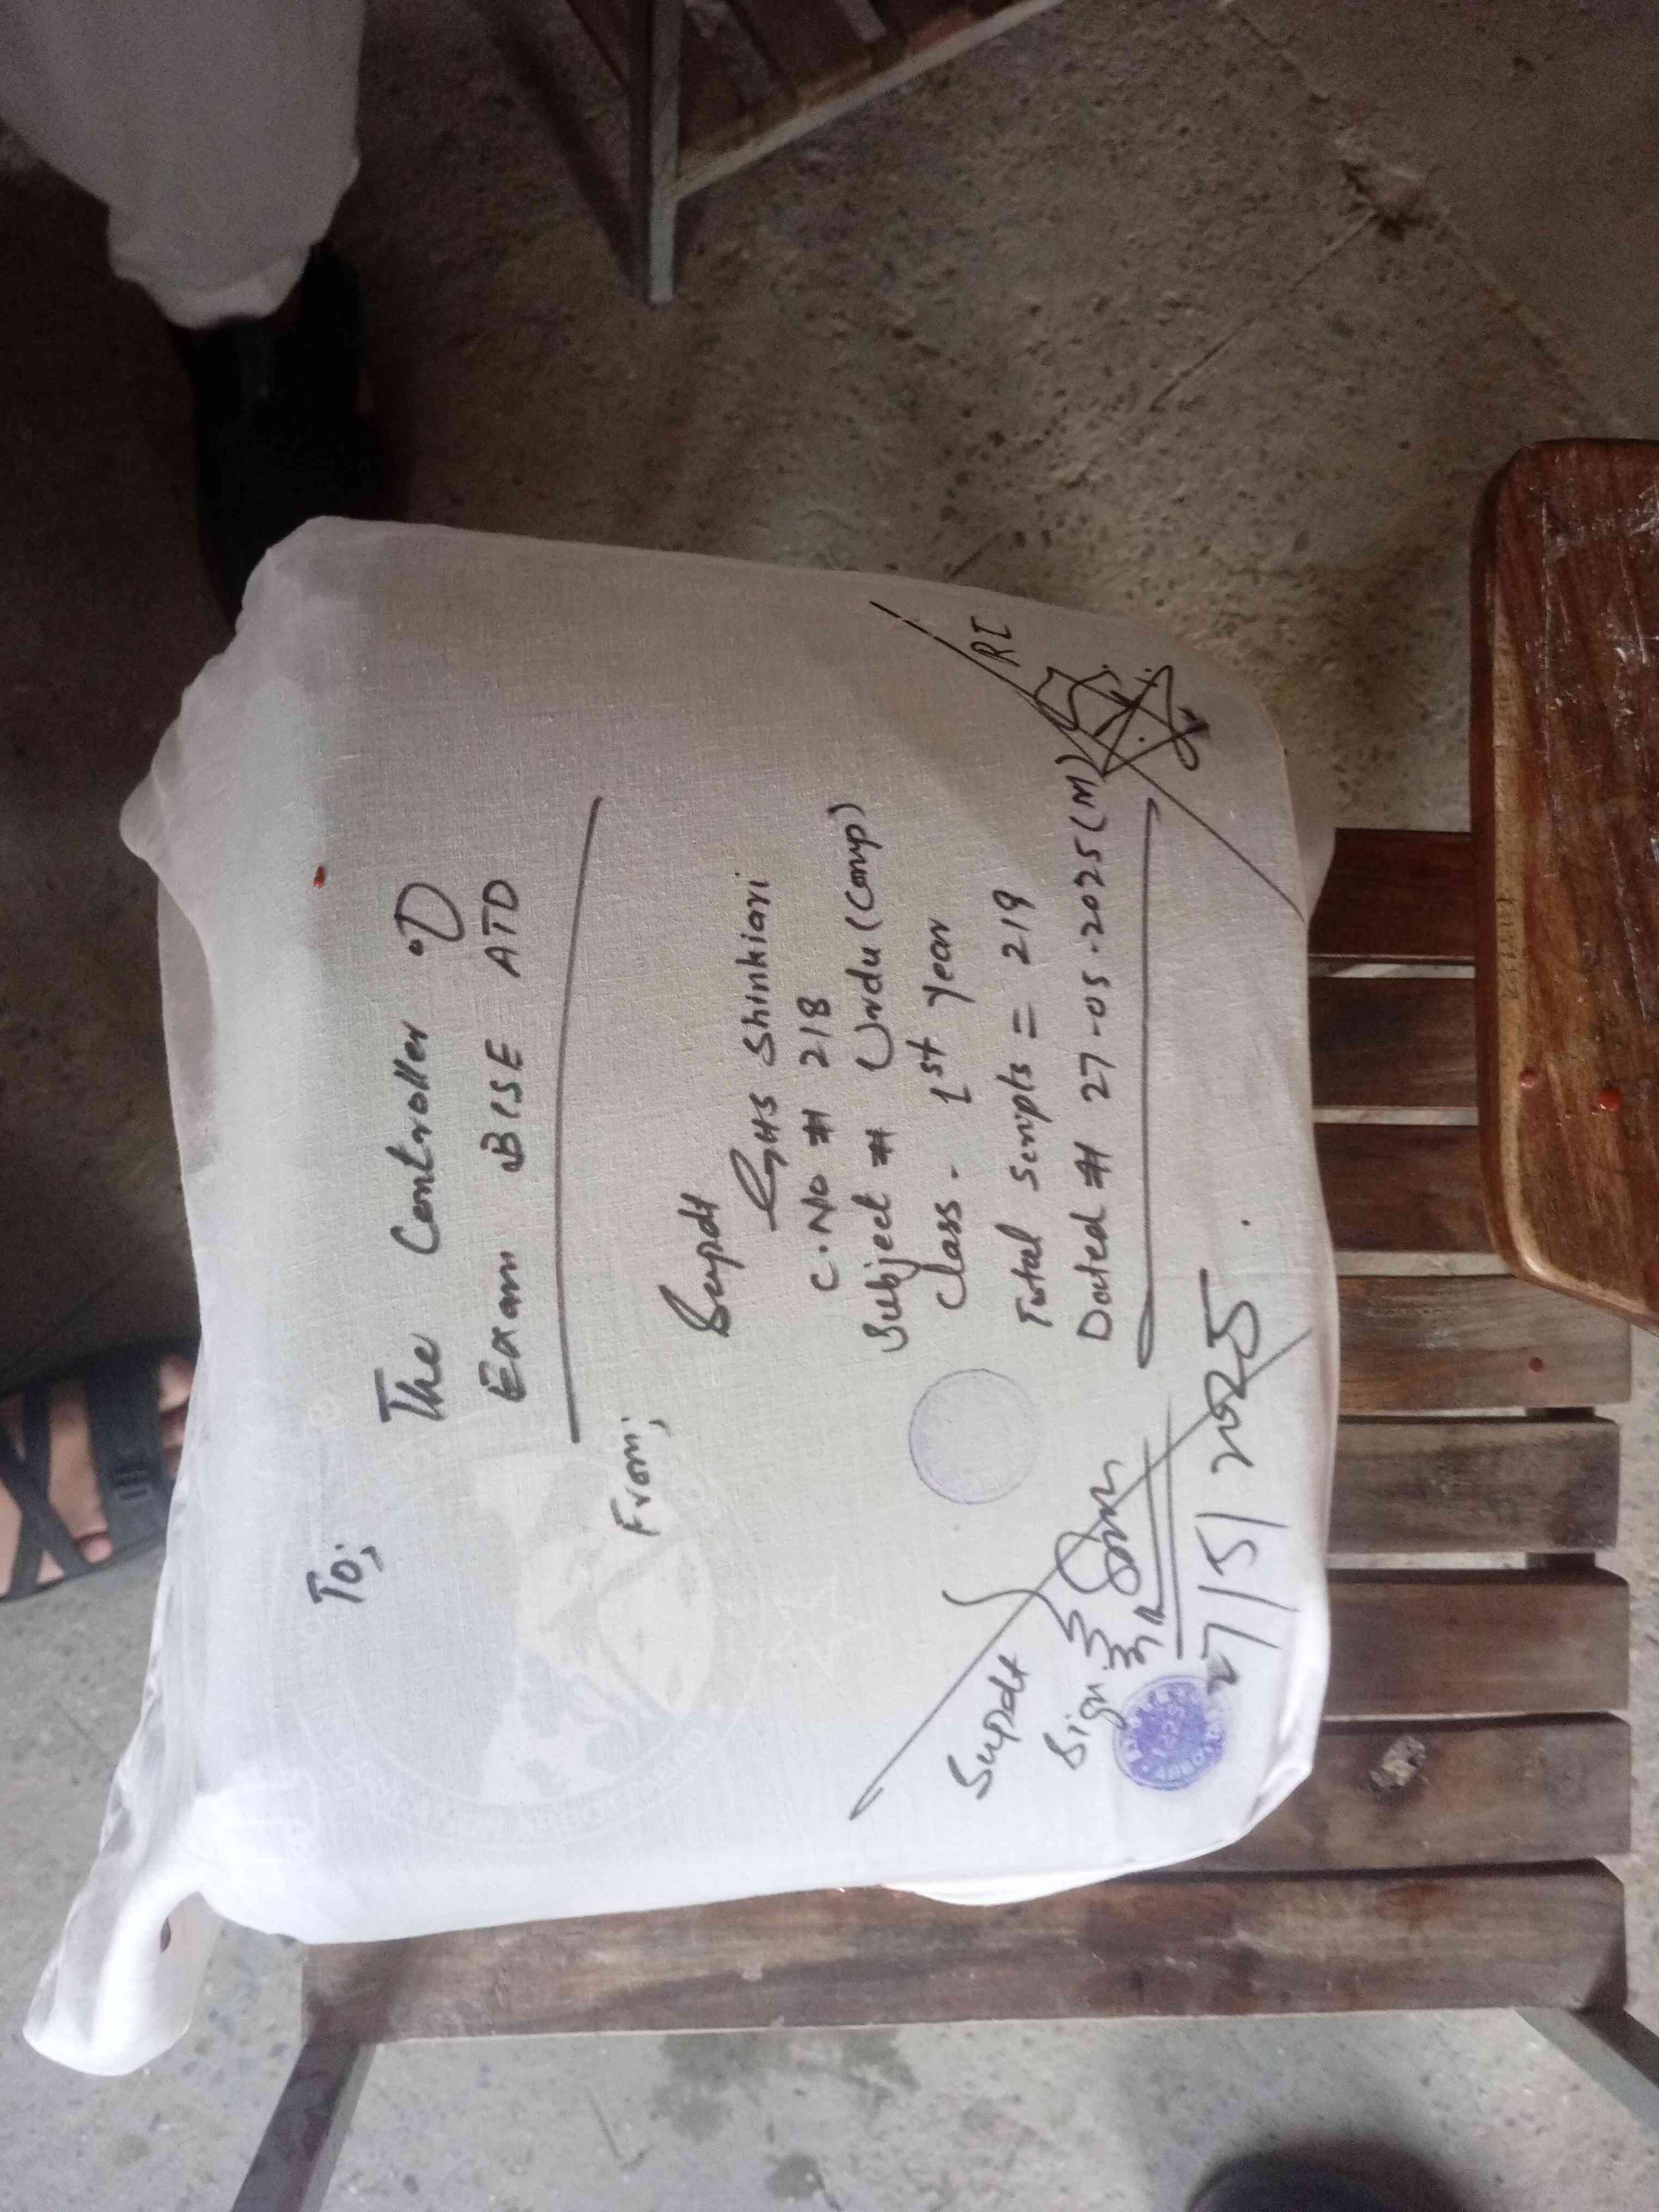 To;
The Controller of
Exam BISE ATD
From;
Supdt
GHS Shinkiari
C.No # 218
Subject # Urdu (Comp)
Class - 1st year
Total Scripts = 219
Dated # 27-05-2025 (M)
Supdt
Sign:
27/5/2025
RI